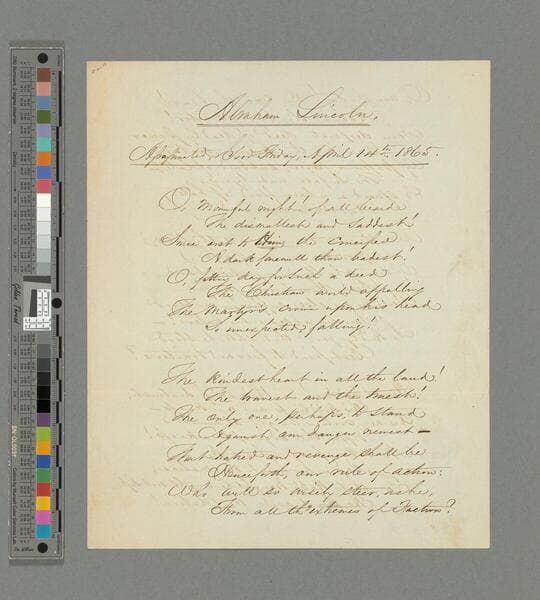 Abraham Lincoln.
Assassinated, Good Friday, April 14th 1865.
O, mournful night! of all beside
The dismallest and saddest!
Since erst to Him, the crucified
A dark farewell thou badest!
O, fitting day for such a deed
The Christian world appalling
The Martyr's crown upon his head
So unexpected, falling!
The kindest heart in all the land!
The bravest and the truest!
The only one, perhaps, to stand
Against our danger newest—
That hatred and revenge shall be
Henceforth, our rule of action:
Who will so wisely steer, as he,
From all th' extremes of Faction?
Golden Thread